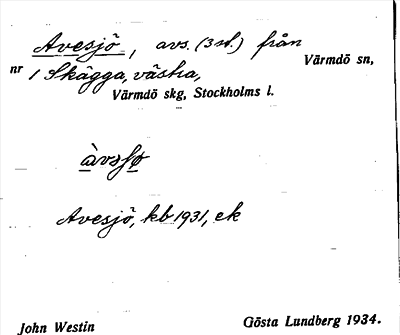 Avesjö, avs. (3 st.) från
Värmdö sn,
nr 1 Skägga, västra,
Värmdö skg, Stockholms l.
Avesjö, kb 1931, ek
John Westin
Gösta Lundberg 1934.